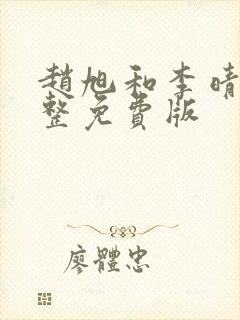 趙旭和李晴
整免費版
廖體忠